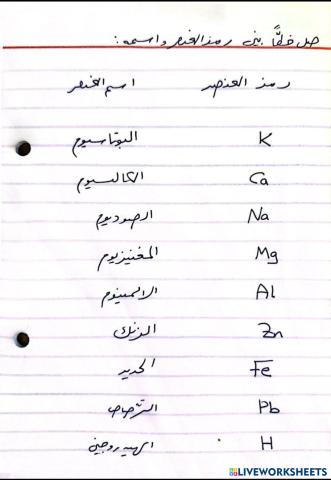 صل خطًا بين رمز العنصر واسمه:
رمز العنصر اسم العنصر
K البوتاسيوم
Ca الكالسيوم
Na الصوديوم
Mg المغنيزيوم
Al الالمينوم
Zn الزنك
Fe الحديد
Pb الرصاص
H الهيدروجين
LIVEWORKSHEETS